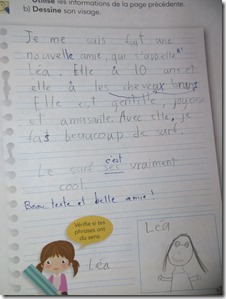 Utilise les informations de la page précédente.
b) Dessine son visage.
Je me suis fait une
nouvelle amie, qui s'appelle
Léa. Elle à 10 ans et
elle à les cheveux bruns
Elle est gentille, joyeuse
et amusante. Avec elle, je
fais beaucoup de surf.
c'est
Le surf ses vraiment
cool
Beau texte et belle amie!
Vérifie si tes
phrases ont
du sens.
Léa
Léa